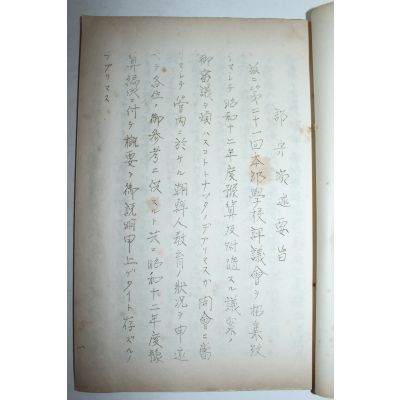 郡守演述要旨
玆ニ第二十一回本郡學校評議會ヲ招集致
シマシテ昭和十二年度豫算及附隨スル議案ノ
御審議ヲ煩ハスコトトナツタノデアリマスガ開會ニ當
リマシテ管内ニ於ケル朝鮮人敎育ノ狀況ヲ申述
ベテ各位ノ御參考ニ供スルト共ニ昭和十二年度豫
算編成ニ付テ槪要ヲ御說明申上ゲタイト存ズルノ
デアリマス